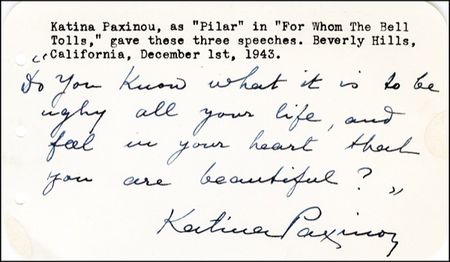 Katina Paxinou, as "Pilar" in "For Whom The Bell
Tolls," gave these three speeches. Beverly Hills,
California, December 1st, 1943.
"Do you know what it is to be
ugly all your life, and
feel in your heart that
you are beautiful?"
Katina Paxinou